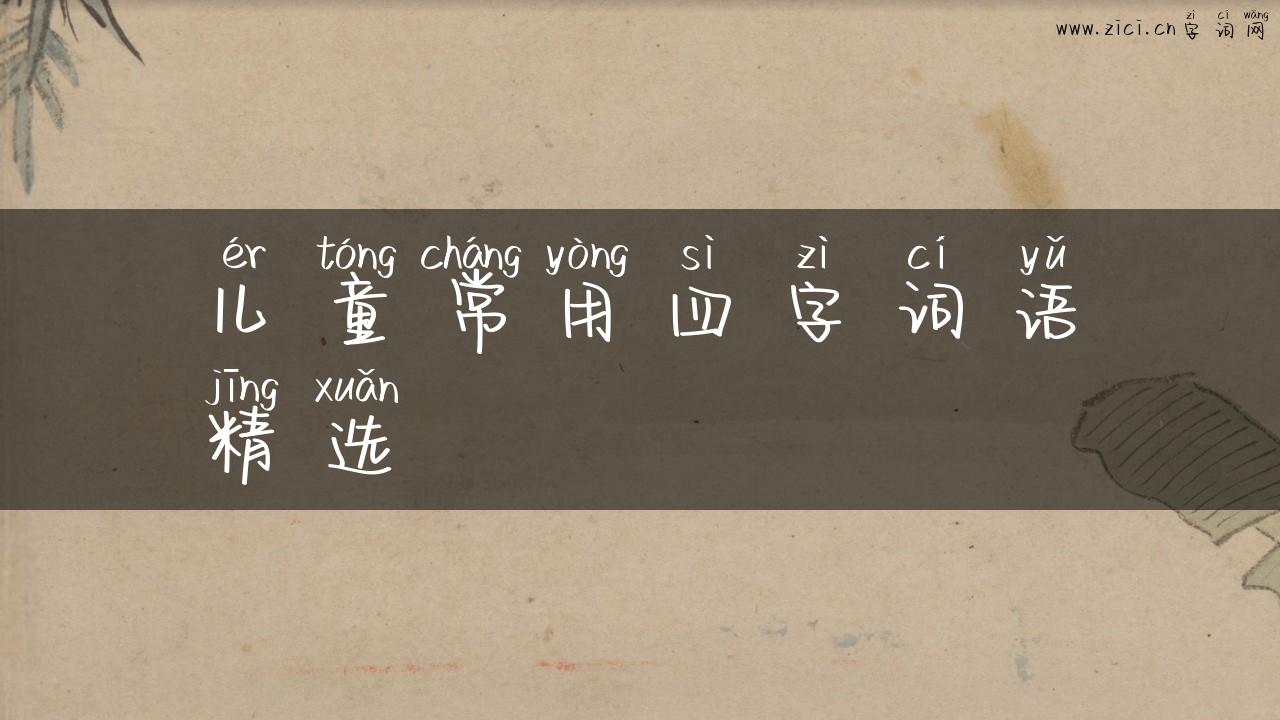 zì cí wǎng
www.zici.cn 字词网
ér tóng cháng yòng sì zì cí yǔ
儿童常用四字词语
jīng xuǎn
精选